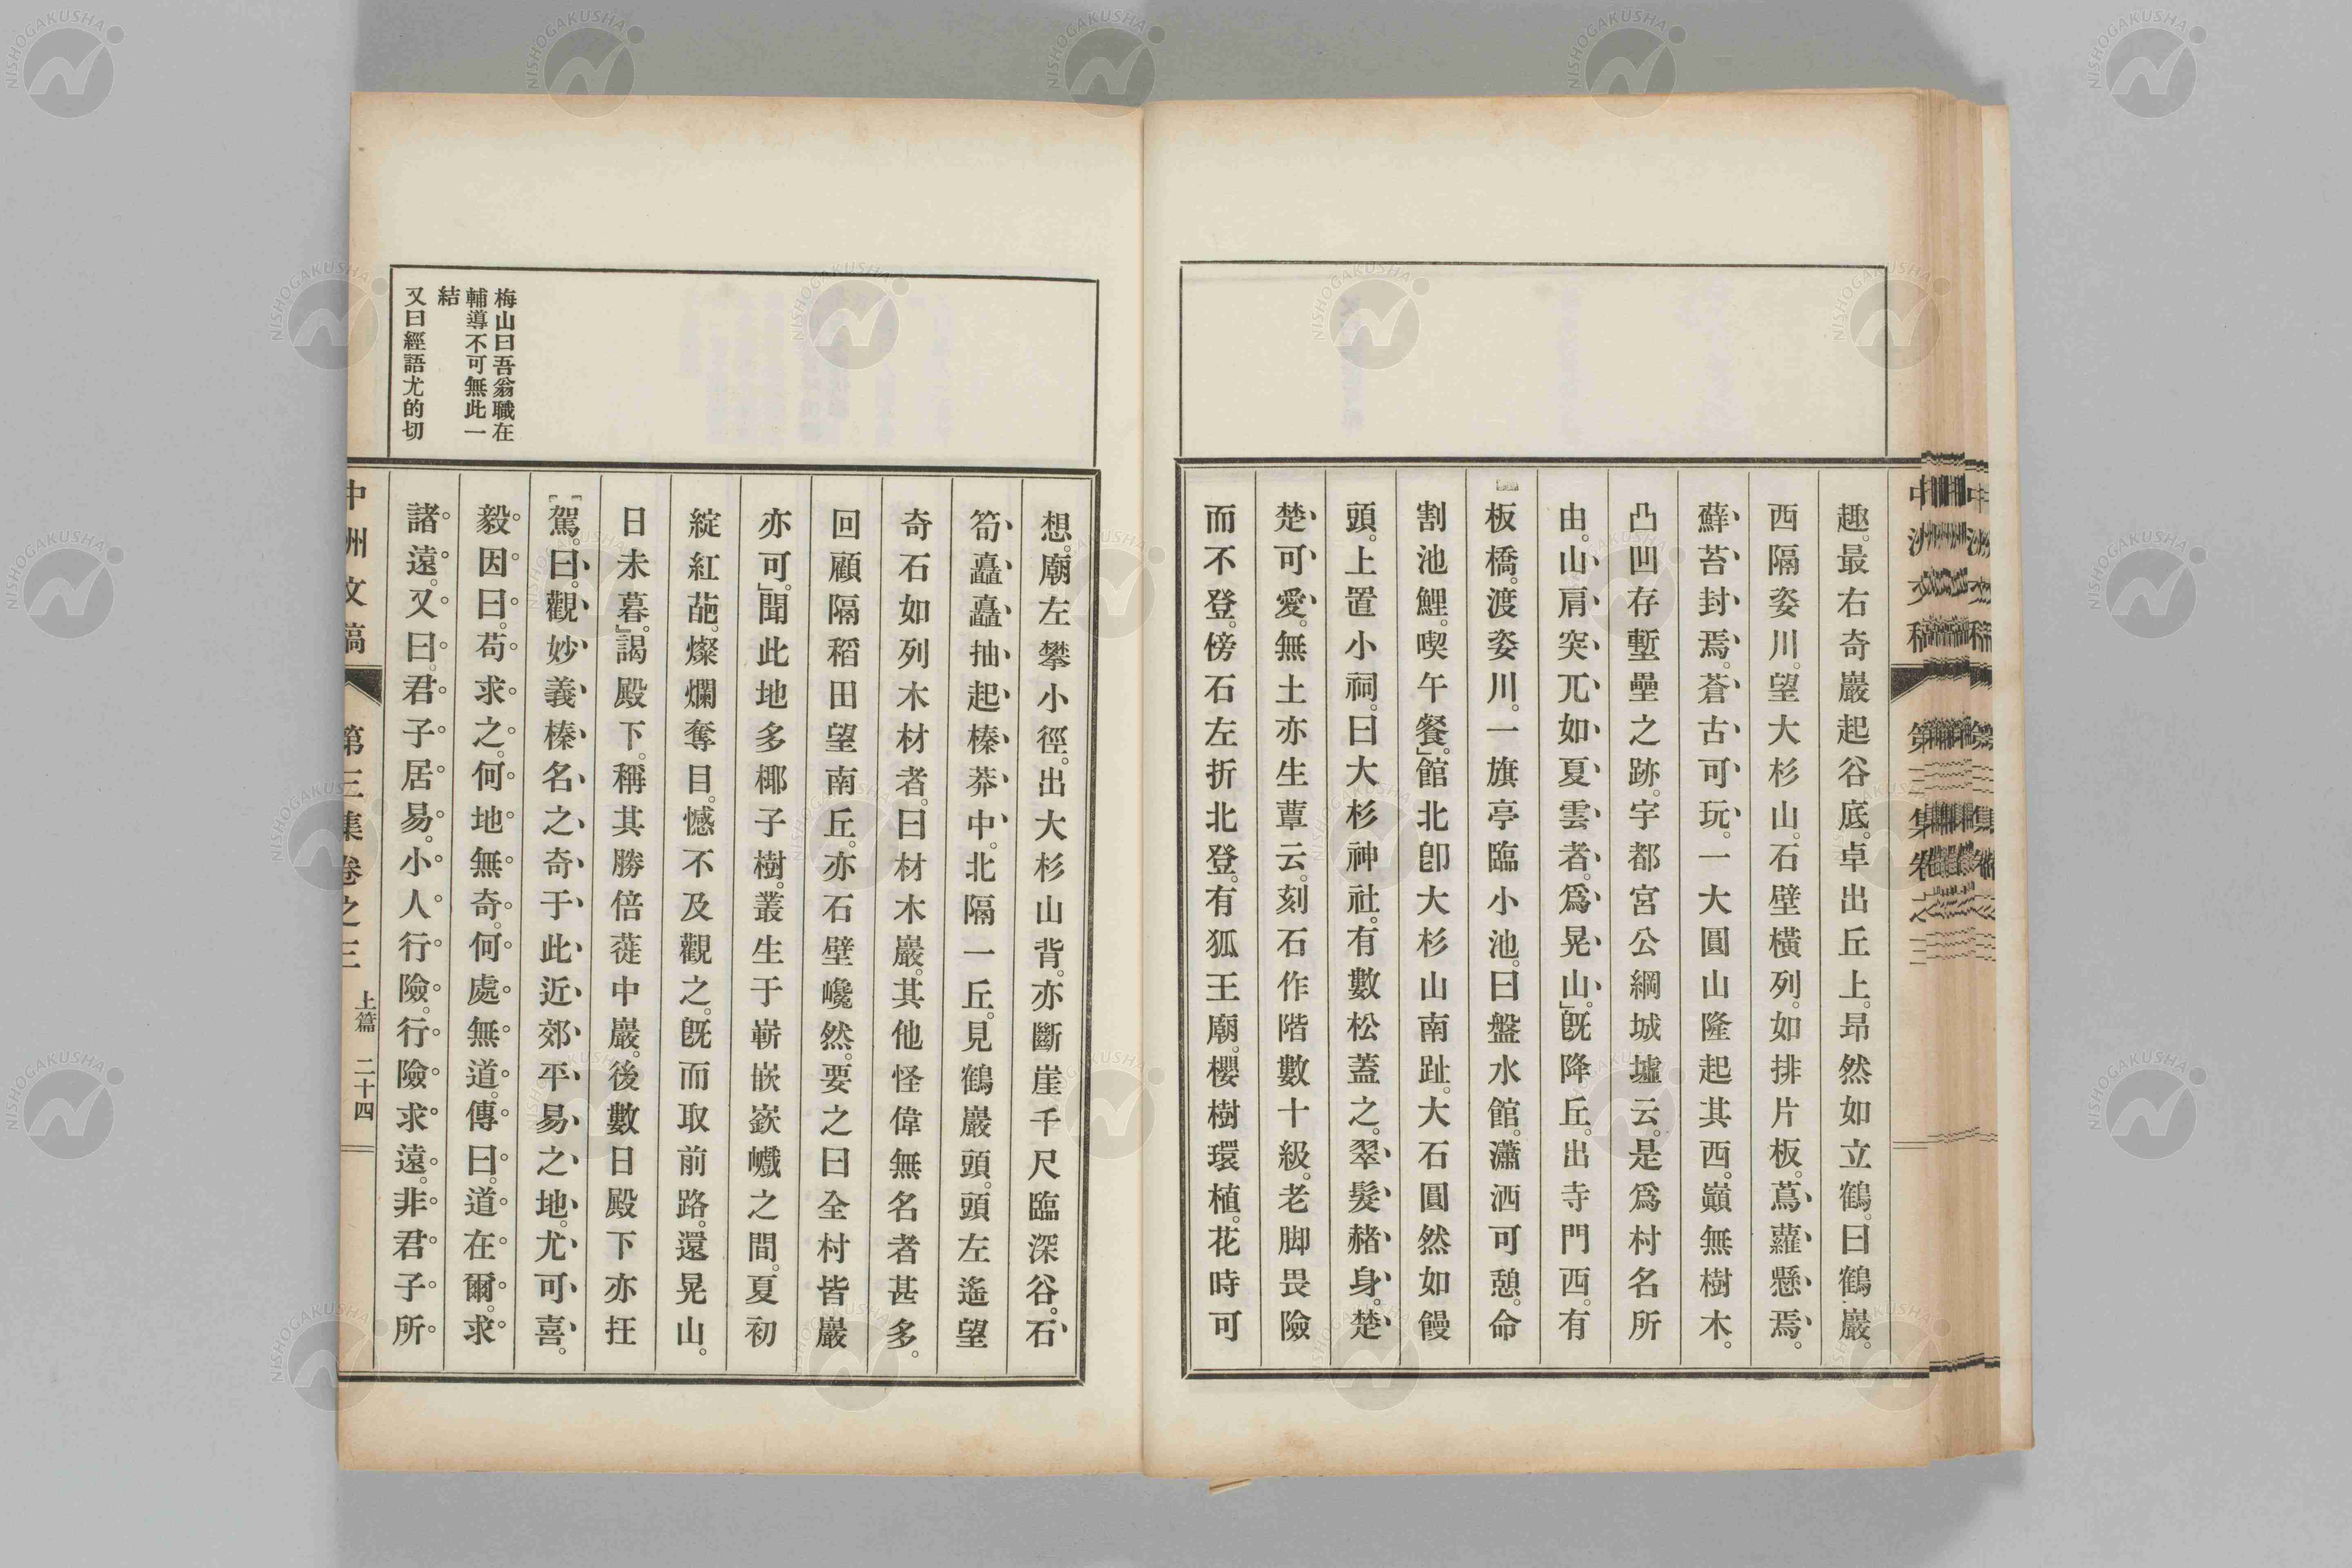 趣。最右奇巖起谷底。卓出丘上。昂然如立鶴。曰鶴巖。
西隔姿川。望大杉山。石壁橫列。如排片板。蔦蘿懸焉。
蘚苔封焉。蒼古可玩。一大圓山隆起其西。巓無樹木。
凸凹存塹壘之跡。宇都宮公綱城墟云。是爲村名所
由。山肩突兀如夏雲者。爲晃山。」旣降丘。出寺門西。有
板橋。渡姿川。一旗亭臨小池。曰盤水館。瀟洒可憩。命
割池鯉。喫午餐。」館北卽大杉山南趾。大石圓然如饅
頭。上置小祠。曰大杉神社。有數松蓋之。翠髮赭身。楚
楚可愛。無土亦生蕈云。刻石作階數十級。老脚畏險
而不登。傍石左折北登。有狐王廟。櫻樹環植。花時可
想。廟左攀小徑。出大杉山背。亦斷崖千尺臨深谷。石
筍矗矗抽起榛莽中。北隔一丘。見鶴巖頭。頭左遙望
奇石如列木材者。曰材木巖。其他怪偉無名者甚多。
回顧隔稻田望南丘。亦石壁巉然。要之曰全村皆巖
亦可。」聞此地多椰子樹。叢生于嶄嵌嶔巇之間。夏初
綻紅葩。燦爛奪目。憾不及觀之。旣而取前路。還晃山。
日未暮。」謁殿下。稱其勝倍蓰中巖。後數日殿下亦抂
駕。曰。觀妙義榛名之奇于此近郊平易之地。尤可喜。
毅因曰。苟求之。何地無奇。何處無道。傳曰。道在爾。求
諸遠。又曰。君子居易。小人行險。行險求遠。非君子所
梅山曰吾翁職在
輔導不可無此一
結
又曰經語尤的切
中洲文稿 第三集卷之三 上篇 二十四